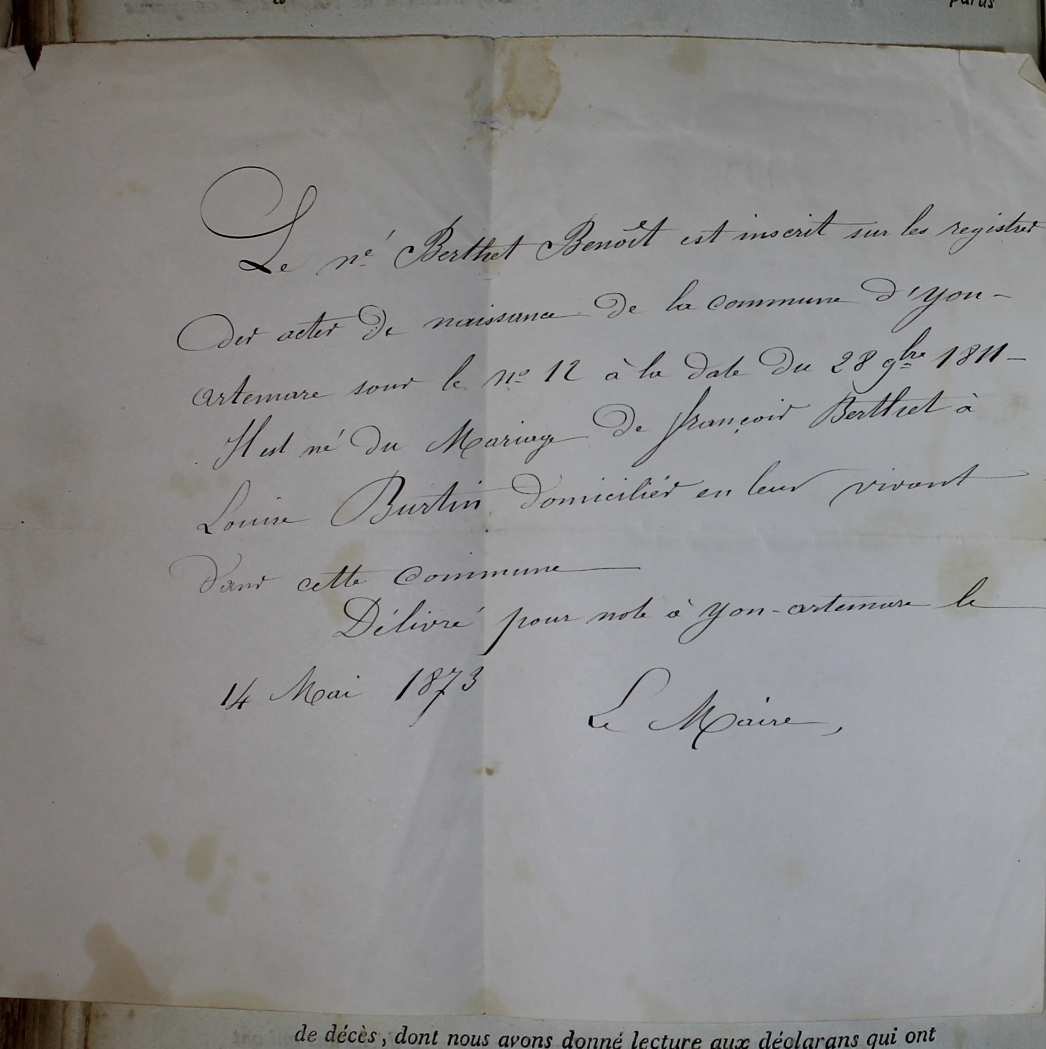 parus
Le né Berthet Benoît est inscrit sur les registres
des actes de naissance de la commune d'yon-
artemare sous le no 12 à la date du 28 9bre 1811-
Il est né du Mariage de françois Berthet à
Louise Burtin domiciliés en leur vivant
dans cette commune
Délivré pour note à yon-artemare le
14 Mai 1873
Le Maire,
de décès, dont nous avons donné lecture aux déclarans qui ont